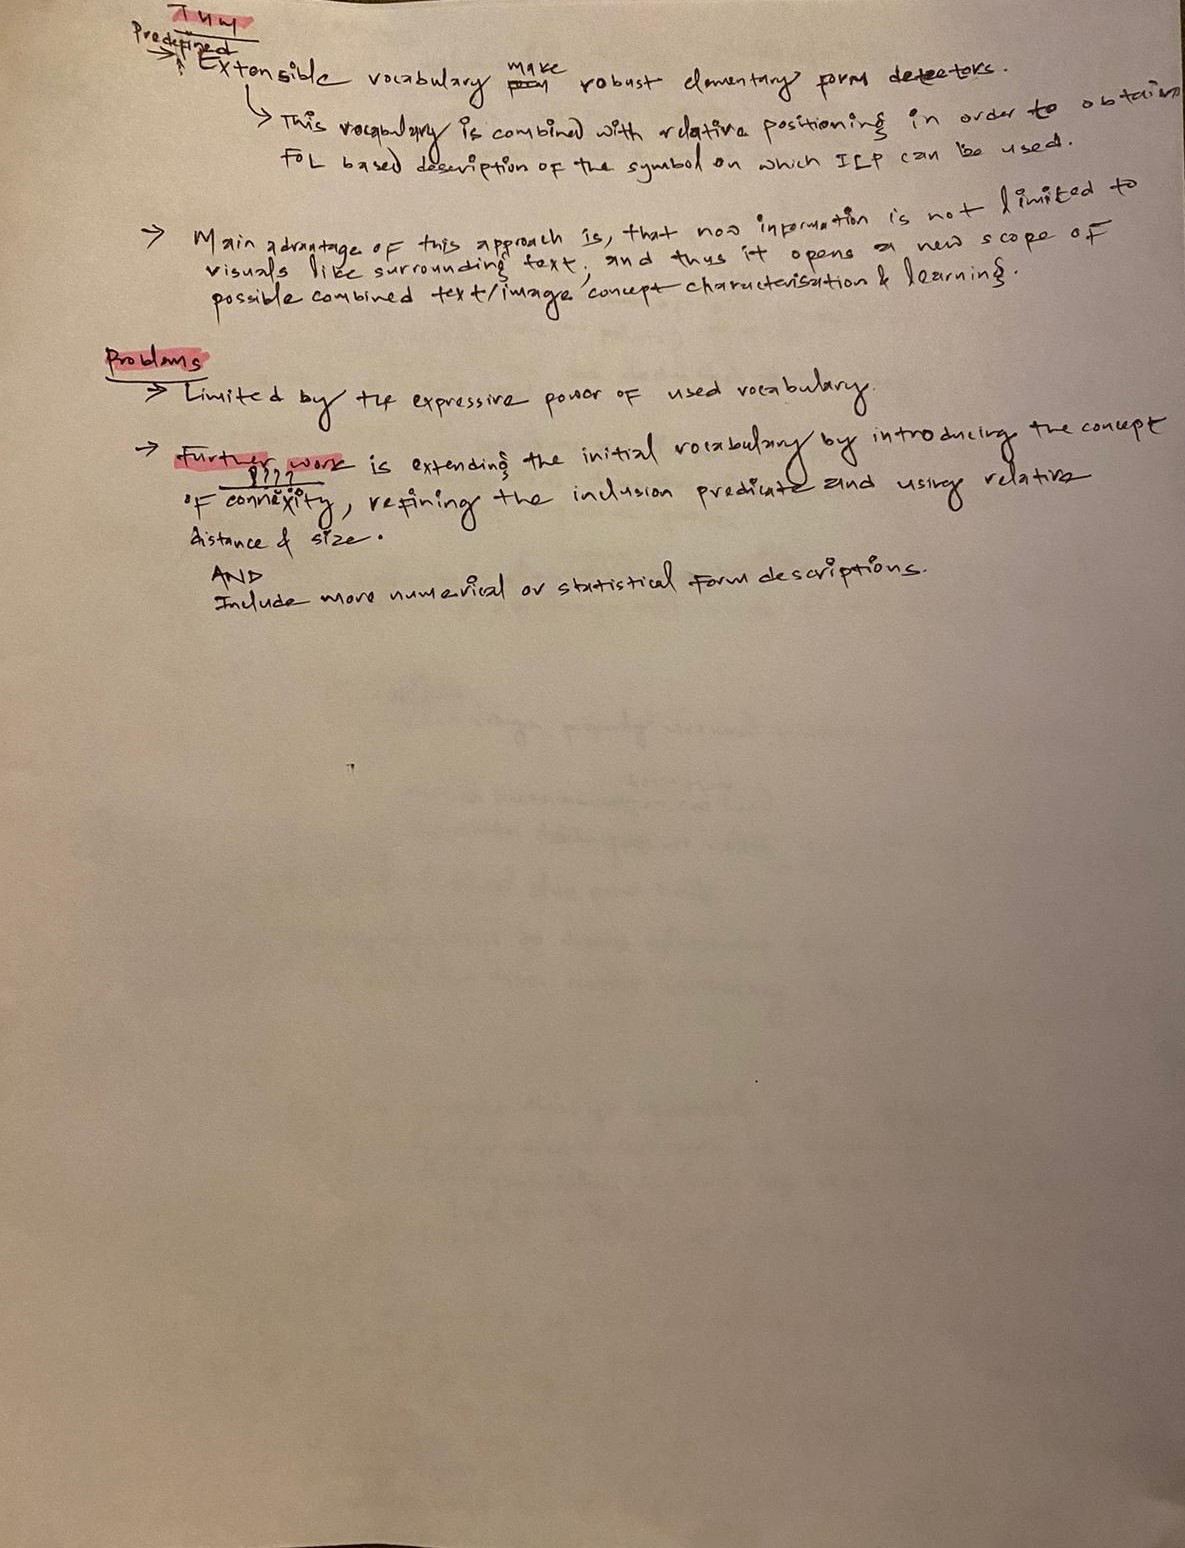 Predefined
→ Extensible vocabulary make robust elementary form detectors.
↳ This vocabulary is combined with relative positioning in order to obtain
FOL based description of the symbol on which ILP can be used.
→ Main advantage of this approach is, that now information is not limited to
visuals like surrounding text, and thus it opens a new scope of
possible combined text/image concept characterisation & learning.
Problems
→ Limited by the expressive power of used vocabulary.
→ Further work is extending the initial vocabulary by introducing the concept
????
of connexity, refining the inclusion predicate and using relative
distance & size.
AND
Include more numerical or statistical form descriptions.